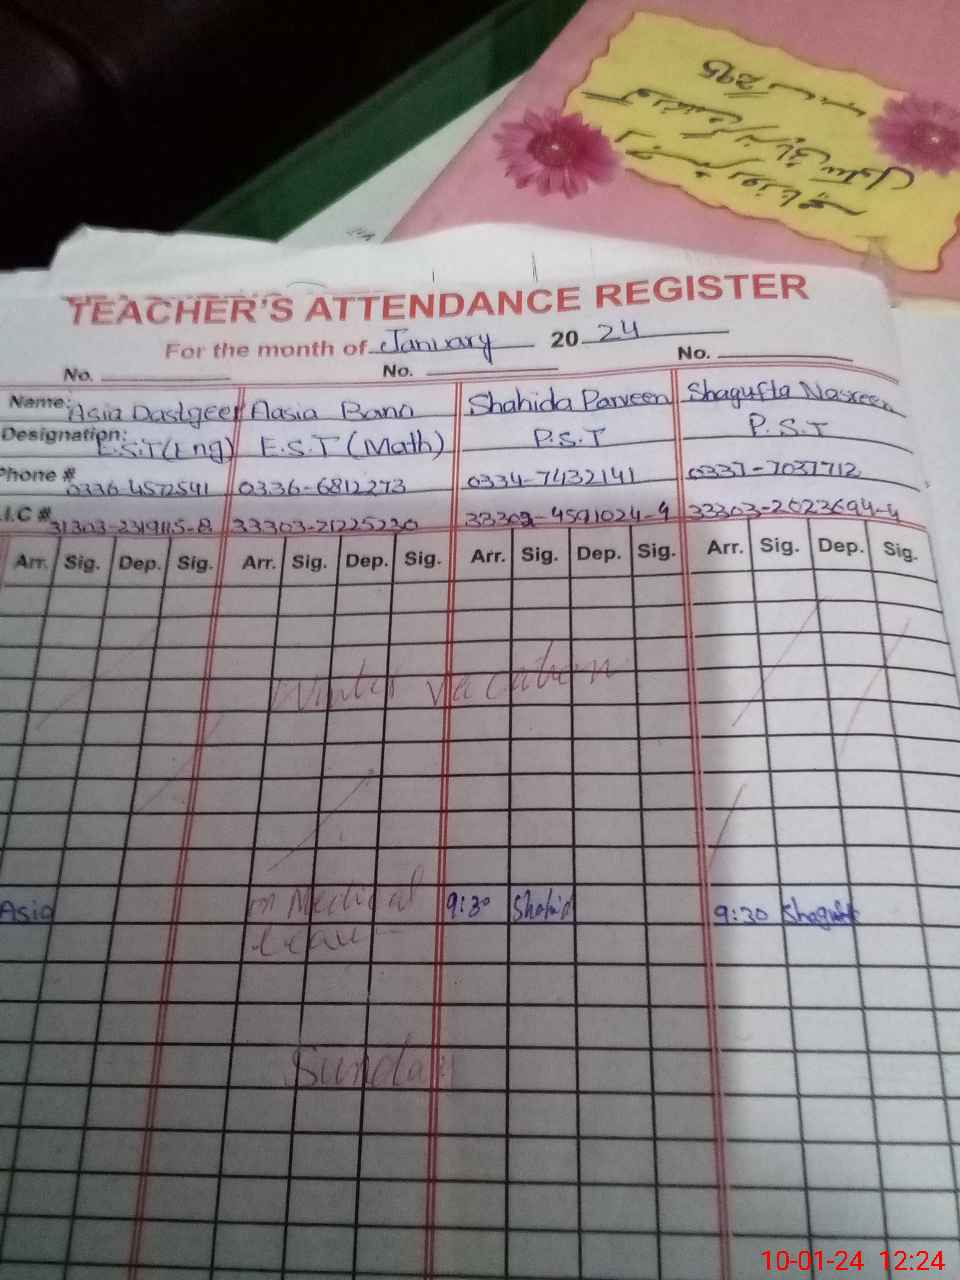 TEACHER'S ATTENDANCE REGISTER
For the month of January 2024
No. No. No.
Name: Asia Dastgeer Aasia Bano Shahida Parveen Shagufta Nasreen
Designation: E.S.T(Eng) E.S.T (Math) P.S.T P.S.T
Phone # 0336-4572541 0336-6812273 0334-7432141 0337-7037712
I.C # 31303-2319115-8 33303-21225230 33302-4591024-4 33303-2023694-4
Arr. Sig. Dep. Sig. Arr. Sig. Dep. Sig. Arr. Sig. Dep. Sig. Arr. Sig. Dep. Sig.
Winter vacation
Asia on Medical 9:30 Shahid 9:30 Shaguft
Leave
Sunday
10-01-24 12:24